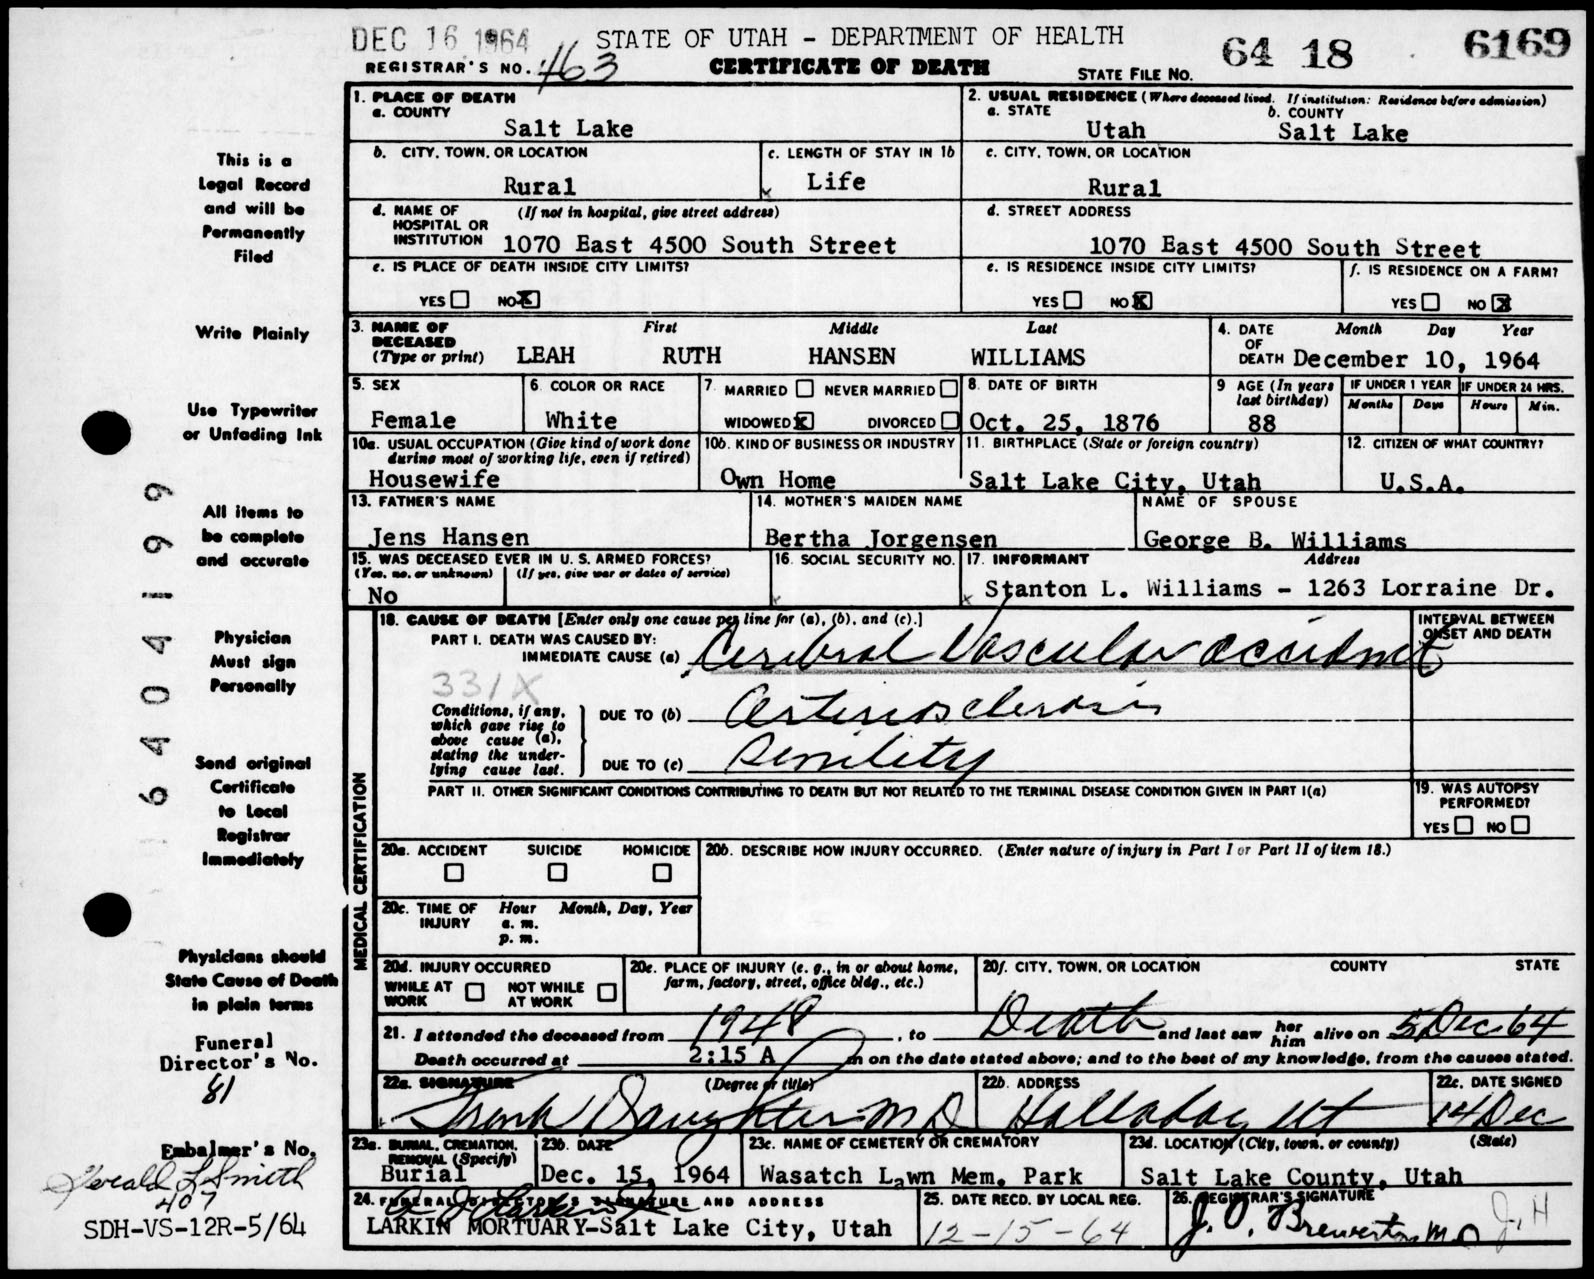 DEC 16 1964
STATE OF UTAH - DEPARTMENT OF HEALTH
64 18 6169
REGISTRAR'S NO. 463
CERTIFICATE OF DEATH
STATE FILE NO.
1. PLACE OF DEATH
a. COUNTY
Salt Lake
2. USUAL RESIDENCE (Where deceased lived. If institution: Residence before admission)
a. STATE b. COUNTY
Utah Salt Lake
b. CITY, TOWN, OR LOCATION
Rural
c. LENGTH OF STAY IN 1b
Life
c. CITY, TOWN, OR LOCATION
Rural
d. NAME OF HOSPITAL OR INSTITUTION (If not in hospital, give street address)
1070 East 4500 South Street
d. STREET ADDRESS
1070 East 4500 South Street
e. IS PLACE OF DEATH INSIDE CITY LIMITS?
YES NO X
e. IS RESIDENCE INSIDE CITY LIMITS?
YES NO X
f. IS RESIDENCE ON A FARM?
YES NO X
3. NAME OF DECEASED (Type or print)
First Middle Last
LEAH RUTH HANSEN WILLIAMS
4. DATE OF DEATH Month Day Year
December 10, 1964
5. SEX
Female
6. COLOR OR RACE
White
7. MARRIED NEVER MARRIED
WIDOWED X DIVORCED
8. DATE OF BIRTH
Oct. 25, 1876
9 AGE (In years last birthday)
88
IF UNDER 1 YEAR IF UNDER 24 HRS.
Months Days Hours Min.
10a. USUAL OCCUPATION (Give kind of work done during most of working life, even if retired)
Housewife
10b. KIND OF BUSINESS OR INDUSTRY
Own Home
11. BIRTHPLACE (State or foreign country)
Salt Lake City, Utah
12. CITIZEN OF WHAT COUNTRY?
U.S.A.
13. FATHER'S NAME
Jens Hansen
14. MOTHER'S MAIDEN NAME
Bertha Jorgensen
NAME OF SPOUSE
George B. Williams
15. WAS DECEASED EVER IN U. S. ARMED FORCES?
(Yes, no, or unknown) (If yes, give war or dates of service)
No
16. SOCIAL SECURITY NO.
17. INFORMANT Address
Stanton L. Williams - 1263 Lorraine Dr.
18. CAUSE OF DEATH [Enter only one cause per line for (a), (b), and (c).]
PART I. DEATH WAS CAUSED BY:
IMMEDIATE CAUSE (a) Cerebral Vascular accident
INTERVAL BETWEEN ONSET AND DEATH
331X
Conditions, if any, which gave rise to above cause (a), stating the underlying cause last.
DUE TO (b) Arteriosclerosis
DUE TO (c) Senility
PART II. OTHER SIGNIFICANT CONDITIONS CONTRIBUTING TO DEATH BUT NOT RELATED TO THE TERMINAL DISEASE CONDITION GIVEN IN PART I(a)
19. WAS AUTOPSY PERFORMED?
YES NO
MEDICAL CERTIFICATION
20a. ACCIDENT SUICIDE HOMICIDE
20b. DESCRIBE HOW INJURY OCCURRED. (Enter nature of injury in Part I or Part II of item 18.)
20c. TIME OF INJURY Hour Month, Day, Year
a. m.
p. m.
20d. INJURY OCCURRED
WHILE AT WORK NOT WHILE AT WORK
20e. PLACE OF INJURY (e. g., in or about home, farm, factory, street, office bldg., etc.)
20f. CITY, TOWN, OR LOCATION COUNTY STATE
21. I attended the deceased from 1948, to Death and last saw her him alive on 5 Dec 64
Death occurred at 2:15 A m on the date stated above; and to the best of my knowledge, from the causes stated.
22a. SIGNATURE (Degree or title)
Frank Daughters M D
22b. ADDRESS
Holladay Ut
22c. DATE SIGNED
14 Dec
23a. BURIAL, CREMATION, REMOVAL (Specify)
Burial
23b. DATE
Dec. 15, 1964
23c. NAME OF CEMETERY OR CREMATORY
Wasatch Lawn Mem. Park
23d. LOCATION (City, town, or county) (State)
Salt Lake County, Utah
24. FUNERAL DIRECTOR'S SIGNATURE AND ADDRESS
LARKIN MORTUARY-Salt Lake City, Utah
25. DATE RECD. BY LOCAL REG.
12-15-64
26. REGISTRAR'S SIGNATURE
J. O. Brewerton M D J.H
This is a
Legal Record
and will be
Permanently
Filed
Write Plainly
Use Typewriter
or Unfading Ink
All items to
be complete
and accurate
Physician
Must sign
Personally
Send original
Certificate
to Local
Registrar
Immediately
Physicians should
State Cause of Death
in plain terms
Funeral
Director's No.
81
Embalmer's No.
Gerald L Smith
407
SDH-VS-12R-5/64
6404199